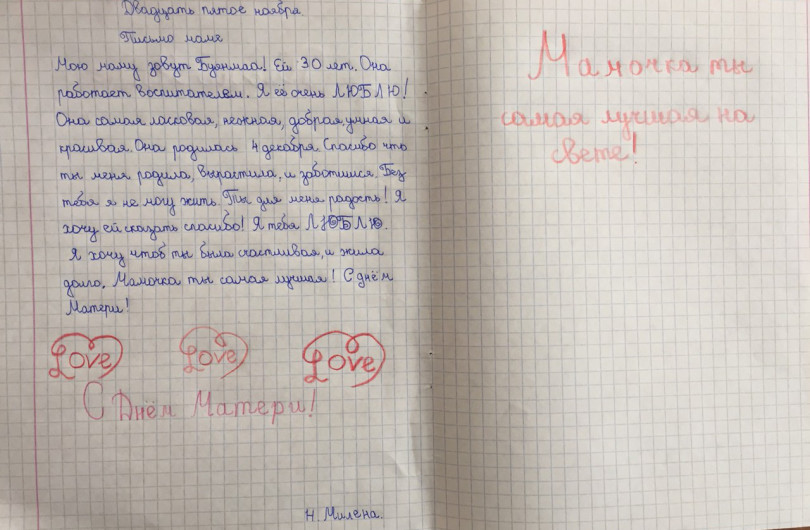 Двадцать пятое ноября.
Письмо маме
Мою маму зовут Буянмаа! Ей 30 лет. Она
работает воспитателем. Я её очень ЛЮБЛЮ!
Она самая ласковая, нежная, добрая, умная и
красивая. Она родилась 4 декабря. Спасибо что
ты меня родила, вырастила, и заботишся. Без
тебя я не могу жить. Ты для меня радость! Я
хочу ей сказать спасибо! Я тебя ЛЮБЛЮ.
Я хочу чтоб ты была счастливая, и жила
долго. Мамочка ты самая лучшая! С днём
Матери!
Love Love Love
С Днём Матери!
Н. Милена.
Мамочка ты
самая лучшая на
свете!